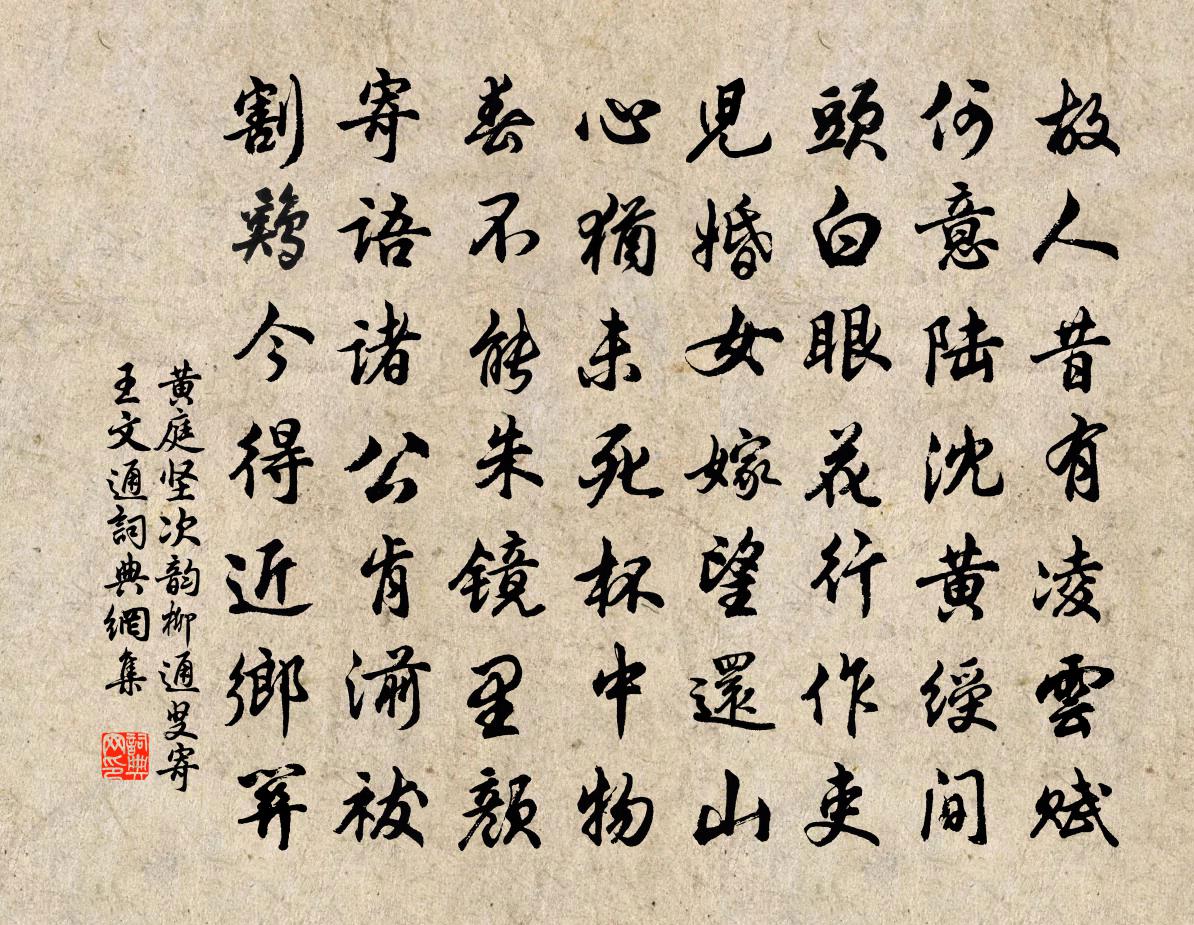 故人昔有凌雲賦
何意陆沈黄綬间
頭白眼花行作吏
児婚女嫁望還山
心猶未死杯中物
春不能朱镜里颜
寄语诸公肯湔祓
割鷄今得近鄉関
黄庭坚次韵柳通叟寄
王文通詞典網集
詞典网印